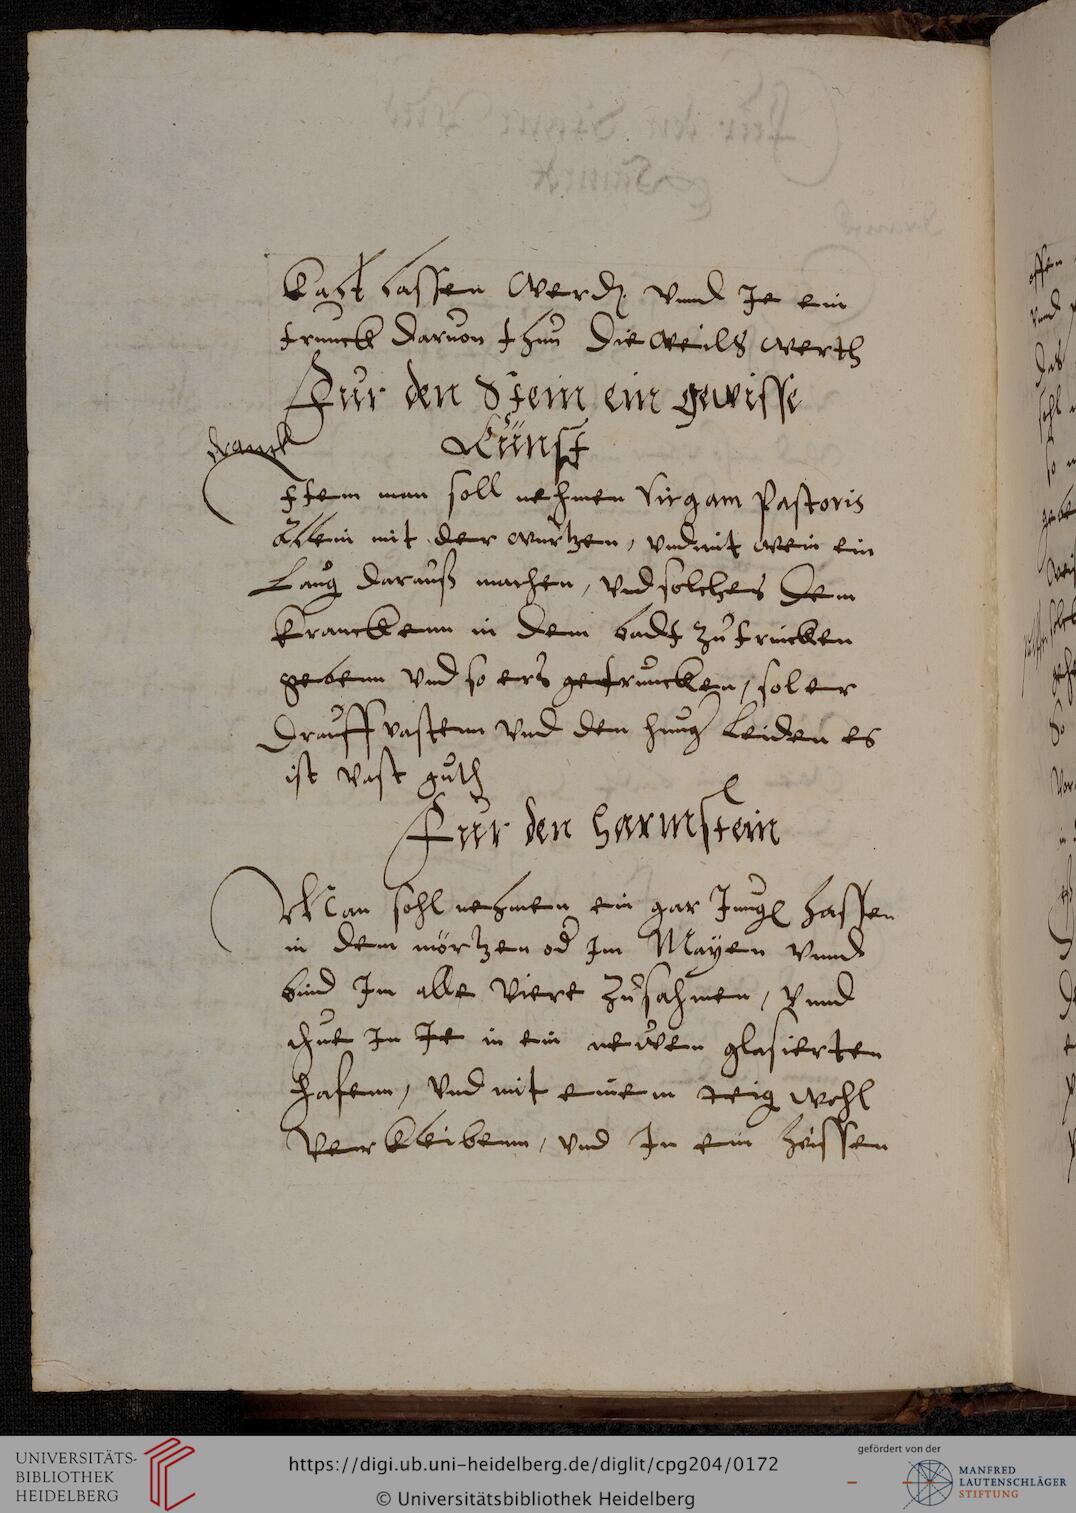 kalt lassen werden vnnd Je ein
trunck daruon thun die weils werth
Fur den Stein ein gewisse
Kunst
dranck
Item man soll nehmen Virgam Pastoris
allein mit der wurtzen, vnd mit wein ein
Laug darauß machen, vnd solches dem
kranckenn in dem badt zu trincken
gebenn vnd so ers getruncken, sol er
drauff vastenn vnd den hung leiden es
ist vast guth
Fur den harmstein
Man sohl nehmen ein gar Jung hassen
in dem mörtzen od Im Mayen vnnd
bind Im alle viere zusahmen, vnnd
thue In in ein newen glasierten
hafenn, vnd mit einem teig wohl
verkleibenn, vnd In ein heissen
UNIVERSITÄTS-
BIBLIOTHEK
HEIDELBERG
https://digi.ub.uni-heidelberg.de/diglit/cpg204/0172
© Universitätsbibliothek Heidelberg
gefördert von der
MANFRED
LAUTENSCHLÄGER
STIFTUNG